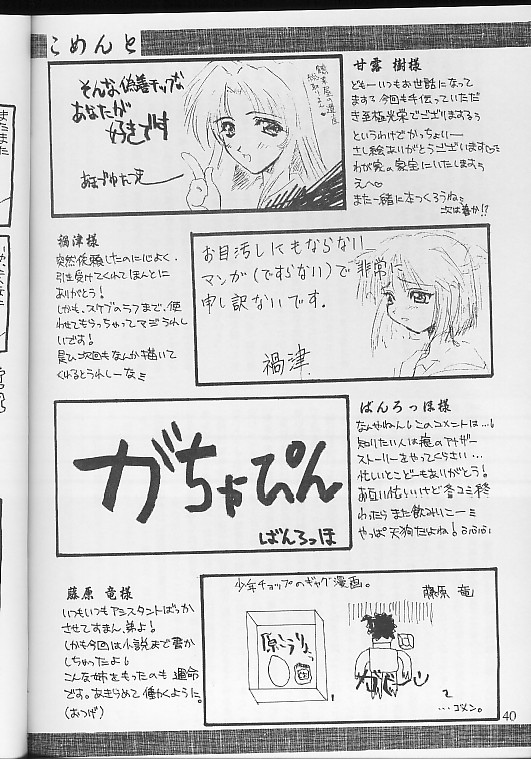 こめんと
甘露 樹様
どもーいつもお世話になって
ますう今回も手伝っていただ
き至極光栄でございまするぅ
というわけでかっちょいー
さし絵ありがとうございます♡
わが家の家宝にいたしますぅ
えへ♡
また一緒に本つくろうね
次は春か!?
そんな、偽善チップな
あなたが
好きです
禍津様
突然依頼したのに心よく、
引き受けてくれてほんとに
ありがとう!
しかも、スケブのラフまで、使
わせてもらっちゃってマジうれし
いです!
是ひ次回もなんか描いて
くれるとうれしーな
お目汚しにもならない
マンガ(ですらない)で非常に
申し訳ないです。
禍津
ばんろっほ様
なんやねん!このコメントは…!
知りたい人は俺のアナザー
ストーリーをやってくらさい…
忙しいとこどーもありがとう!
お互い忙しいけど冬コミ終
わったらまた飲みいこーミ
やっぱ天狗だよね!
がちゃぴん
ばんろっほ
藤原 竜様
いつもいつもアシスタントばっか
させてすまん、弟よ!
しかも今回は小説まで書か
しちゃったよ!
こんな姉をもったのも運命
です。あきらめて働くように。
(おつげ)
少年チョップのギャグ漫画。
藤原 竜
1
ガバーン
2
…ゴメン。
40